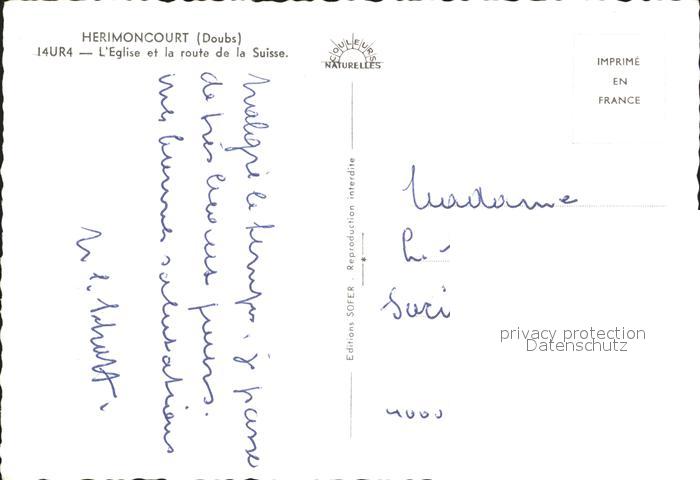 HERIMONCOURT (Doubs)
14UR4 — L'Eglise et la route de la Suisse.
COULEURS
NATURELLES
IMPRIMÉ
EN
FRANCE
Malgré le temps, je passe
de très beaux jours.
mes bonnes salutations
Editions SOFER . Reproduction interdite
Madame
privacy protection
Datenschutz